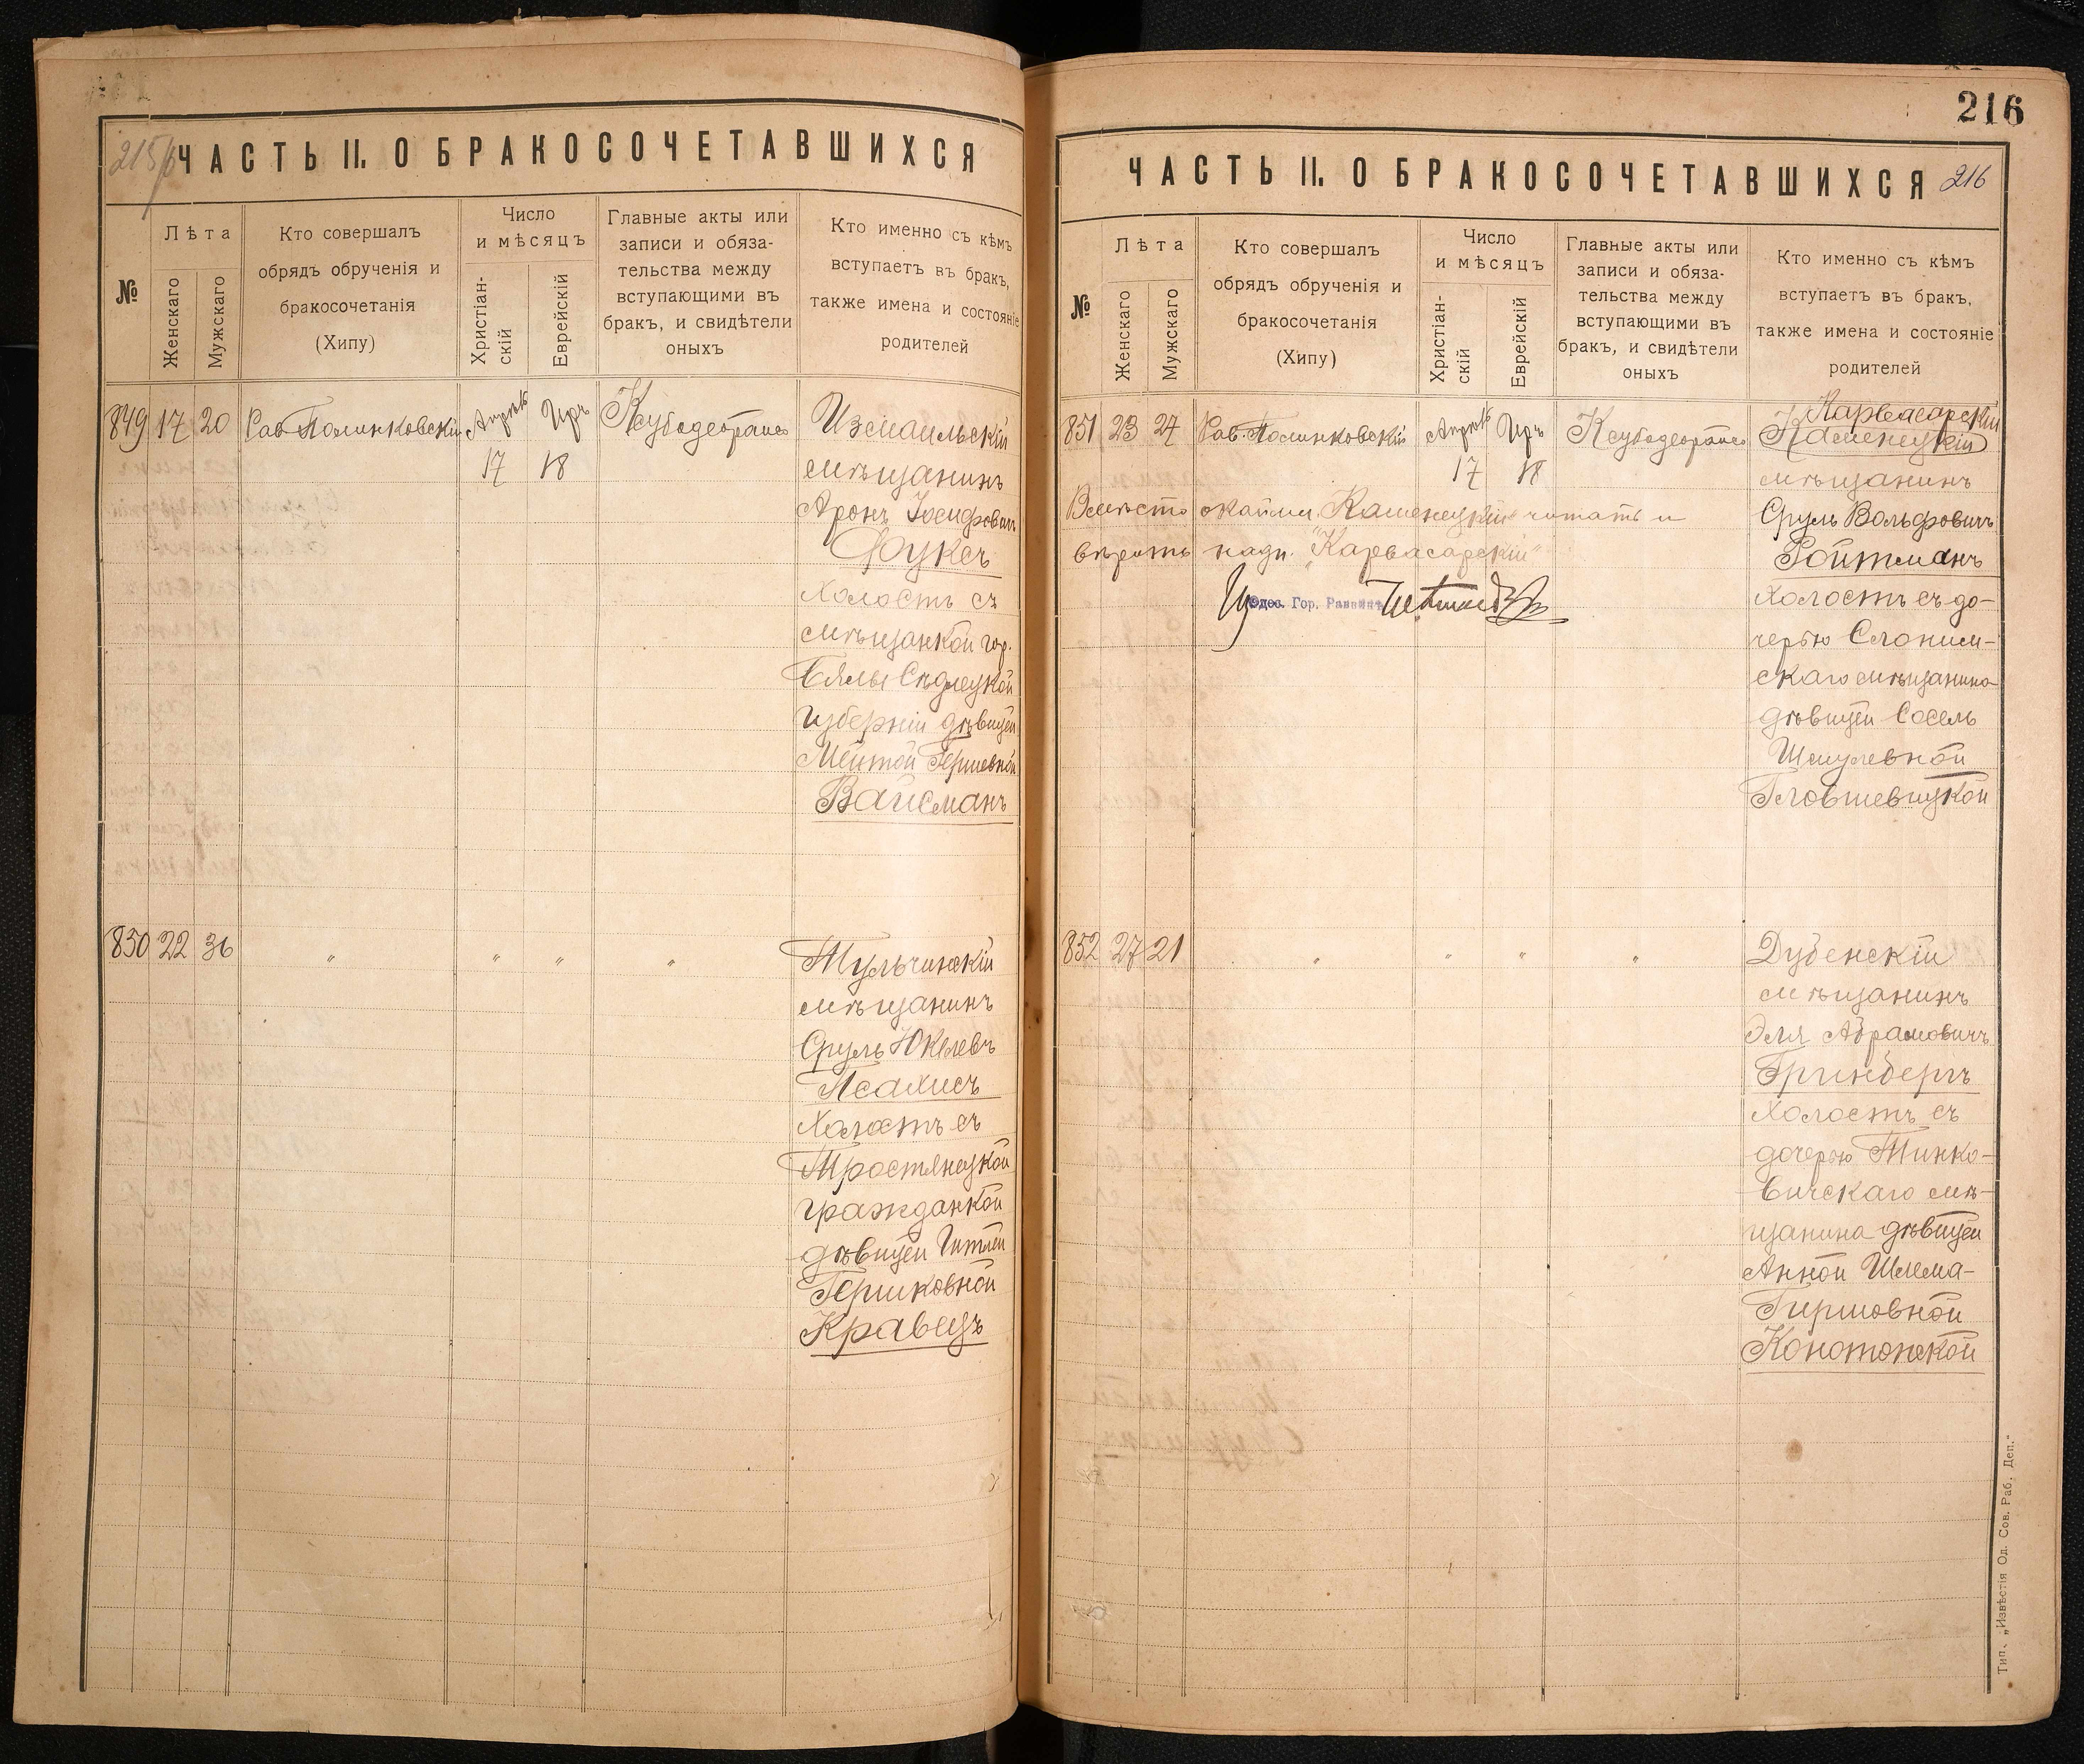 215/б ЧАСТЬ II. О БРАКОСОЧЕТАВШИХСЯ
№
Лѣта
Женскаго
Мужскаго
Кто совершалъ
обрядъ обрученія и
бракосочетанія
(Хипу)
Число
и мѣсяцъ
Христіан-
скій
Еврейскій
Главные акты или
записи и обяза-
тельства между
вступающими въ
бракъ, и свидѣтели
оныхъ
Кто именно съ кѣмъ
вступаетъ въ бракъ,
также имена и состояніе
родителей
849 17 20 Рав. Полинковскій Апрѣль Иръ Ксубедеорансо
17 18
Измаильскій
мѣщанинъ
Аронъ Іосифовъ
Фуксъ
Холостъ съ
мѣщанкой гор.
Бялы Сѣдлецкой
губерніи дѣвицей
Мейтой Гершевной
Вайсманъ
850 22 36 " " " "
Тульчинскій
мѣщанинъ
Сруль Юкелевъ
Псахисъ
Холостъ съ
Тростянецкой
гражданкой
дѣвицей Гитлей
Гершковной
Кравецъ
216
ЧАСТЬ II. О БРАКОСОЧЕТАВШИХСЯ 216
№
Лѣта
Женскаго
Мужскаго
Кто совершалъ
обрядъ обрученія и
бракосочетанія
(Хипу)
Число
и мѣсяцъ
Христіан-
скій
Еврейскій
Главные акты или
записи и обяза-
тельства между
вступающими въ
бракъ, и свидѣтели
оныхъ
Кто именно съ кѣмъ
вступаетъ въ бракъ,
также имена и состояніе
родителей
851 23 27 Рав. Полинковскій Апрѣль Иръ Ксубедеорансо
17 18
Вмѣсто окайм. "Каменецкій" читать и
вѣрить надп. "Карвасарскій"
Одес. Гор. Раввинъ
Карвасарскій
(Каменецкій)
мѣщанинъ
Сруль Вольфовичъ
Ройтманъ
Холостъ съ до-
черью Слоним-
скаго мѣщанина
дѣвицей Сосель
Шмулевной
Гловшевицкой
852 27 21 " " " "
Дубенскій
мѣщанинъ
Эля Абрамовичъ
Гринбергъ
Холостъ съ
дочерью Тинко-
вичскаго мѣ-
щанина дѣвицей
Анной Шлема-
Гиршовной
Конотопской
Тип. „Извѣстія Од. Сов. Раб. Деп."